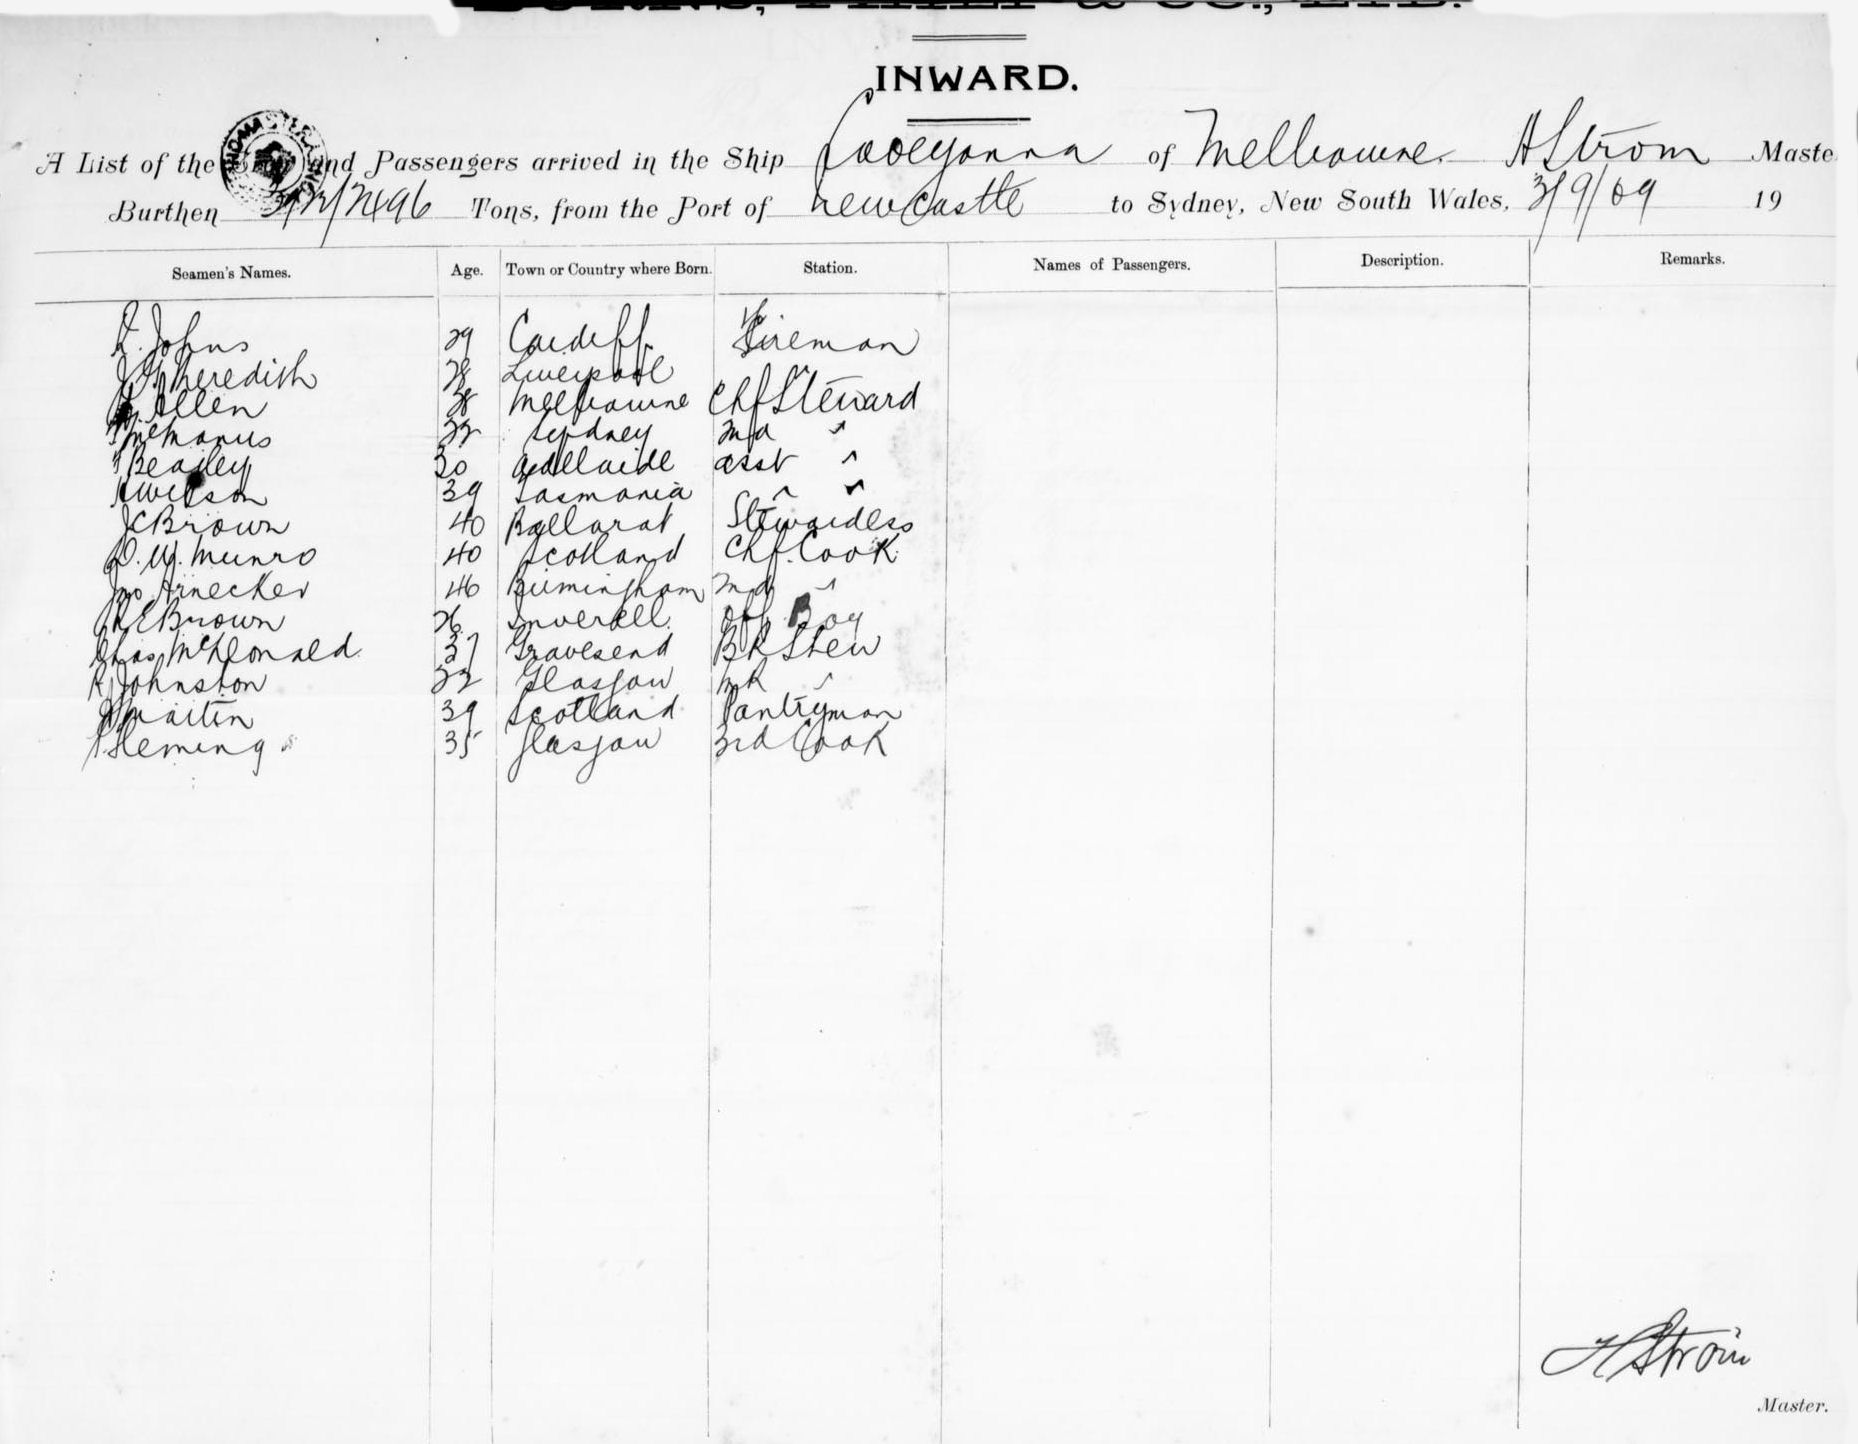 BURNS, PHILP & CO., LTD.
INWARD.
A List of the and Passengers arrived in the Ship Cooeyanna of Melbourne. A Strom Maste
Burthen 2496 Tons, from the Port of Newcastle to Sydney, New South Wales, 3/9/09 19
Seamen's Names. Age. Town or Country where Born. Station. Names of Passengers. Description. Remarks.
Johns 29 Cardiff Fireman
Meredith 28 Liverpool "
Allen 38 Melbourne Chf Steward
McManus 22 Sydney 2nd "
Beasley 30 Adellaide asst "
Wilson 39 Tasmania " "
J C Brown 40 Ballarat Stewardess
D. M. Munro 40 Scotland Chf. Cook
Jno Arnecker 46 Birmingham 2nd "
R E Brown 26 Inverell. Boy
Chas McDonald 37 Gravesend B R Stew
R Johnston 22 Glasgow "
J Martin 39 Scotland Pantryman
Fleming 35 Glasgow 3rd Cook
A Strom
Master.